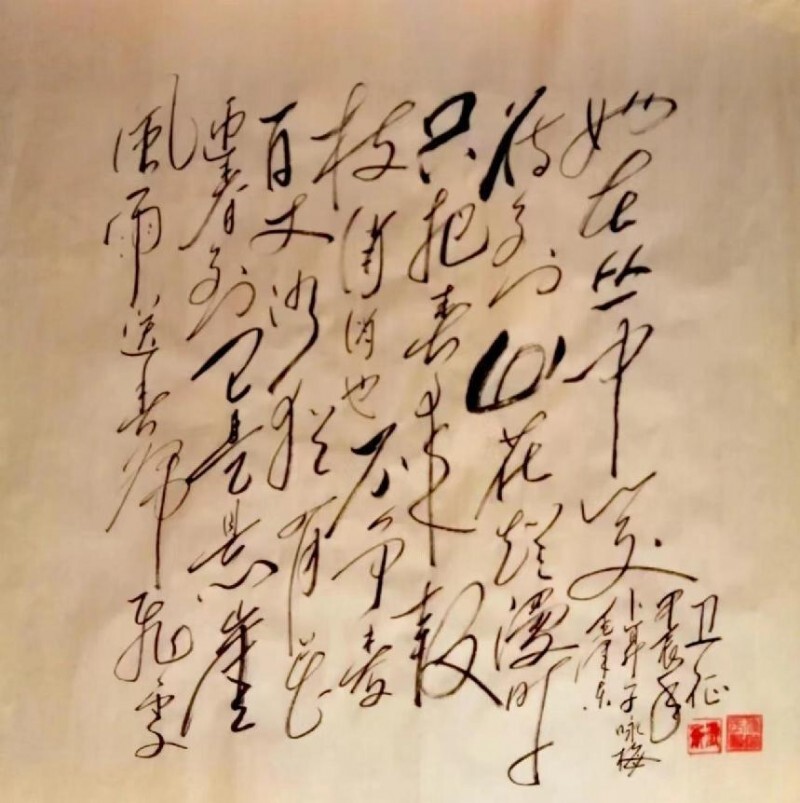 風雨送春归飛雪
迎春到已是悬崖
百丈冰犹有花
枝俏俏也不争春
只把春来報
待到山花烂漫时
她在丛中笑
毛泽东
卜算子咏梅
甲辰年
卫征